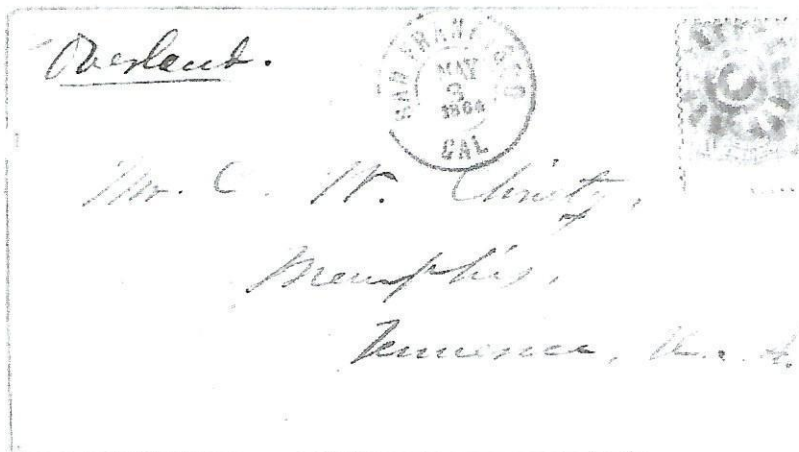 Overland.
SAN FRANCISCO
MAY
3
1864
CAL
Mr. C. W. Christy,
Memphis,
Tennessee,